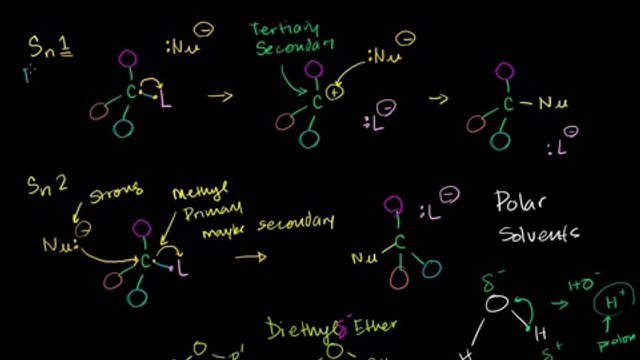 Sn1
:Nu ⊖
C
L
Tertiary
Secondary
C ⊕
:Nu ⊖
:L ⊖
C – Nu
:L ⊖
Sn2
strong
Nu: ⊖
C
L
Methyl
Primary
maybe secondary
Nu C
:L ⊖
Polar
Solvents
δ-
H
δ+
HO-
H+
proton
Diethyl Ether
δ-